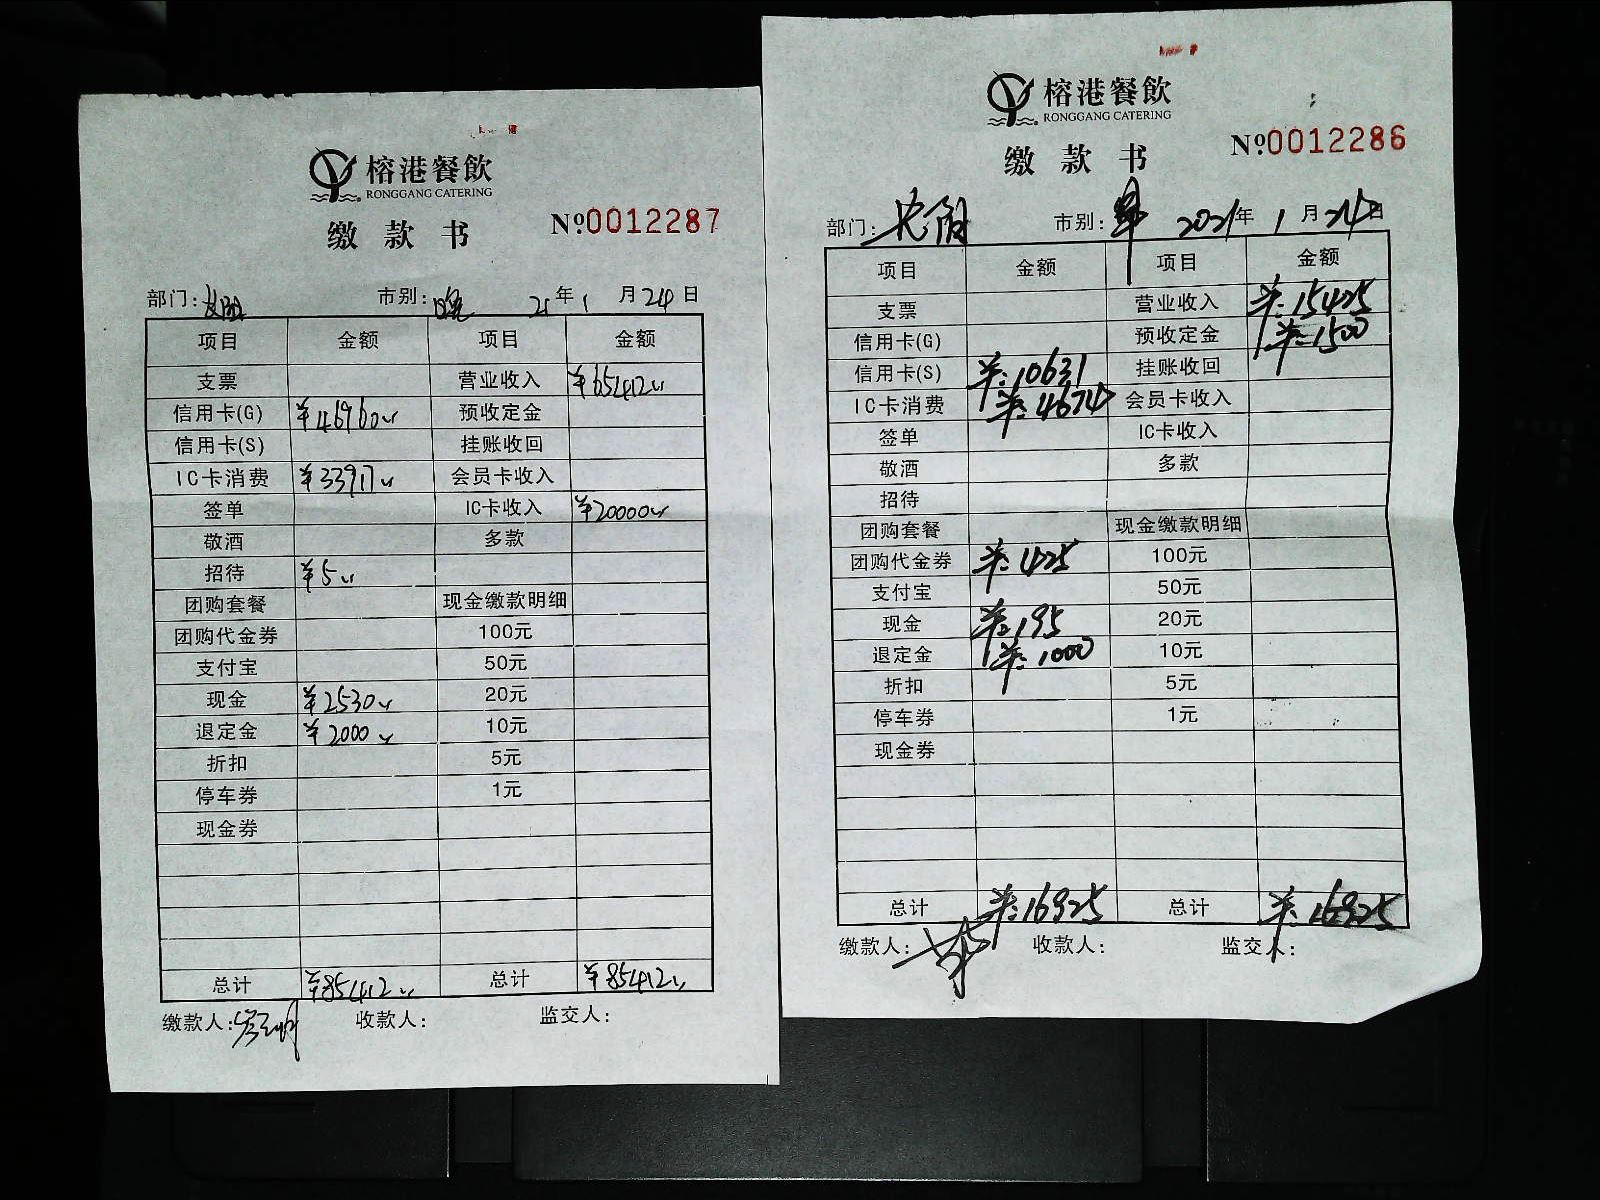 榕港餐飲
RONGGANG CATERING
缴款书
№0012287
部门: 市别:晚 21年1月24日
项目 金额 项目 金额
支票 营业收入 ¥65412
信用卡(G) ¥46960 预收定金
信用卡(S) 挂账收回
IC卡消费 ¥33917 会员卡收入
签单 IC卡收入 ¥20000
敬酒 多款
招待 ¥5
团购套餐 现金缴款明细
团购代金券 100元
支付宝 50元
现金 ¥2530 20元
退定金 ¥2000 10元
折扣 5元
停车券 1元
现金券
总计 ¥85412 总计 ¥85412
缴款人: 收款人: 监交人:
榕港餐飲
RONGGANG CATERING
缴款书
№0012286
部门: 市别: 2021年1月24日
项目 金额 项目 金额
支票 营业收入 ¥:15425
信用卡(G) 预收定金 ¥:1500
信用卡(S) ¥:10631 挂账收回
IC卡消费 ¥:4674 会员卡收入
签单 IC卡收入
敬酒 多款
招待
团购套餐 现金缴款明细
团购代金券 ¥:425 100元
支付宝 50元
现金 ¥:195 20元
退定金 ¥:1000 10元
折扣 5元
停车券 1元
现金券
总计 ¥:16925 总计 ¥:16925
缴款人: 收款人: 监交人: